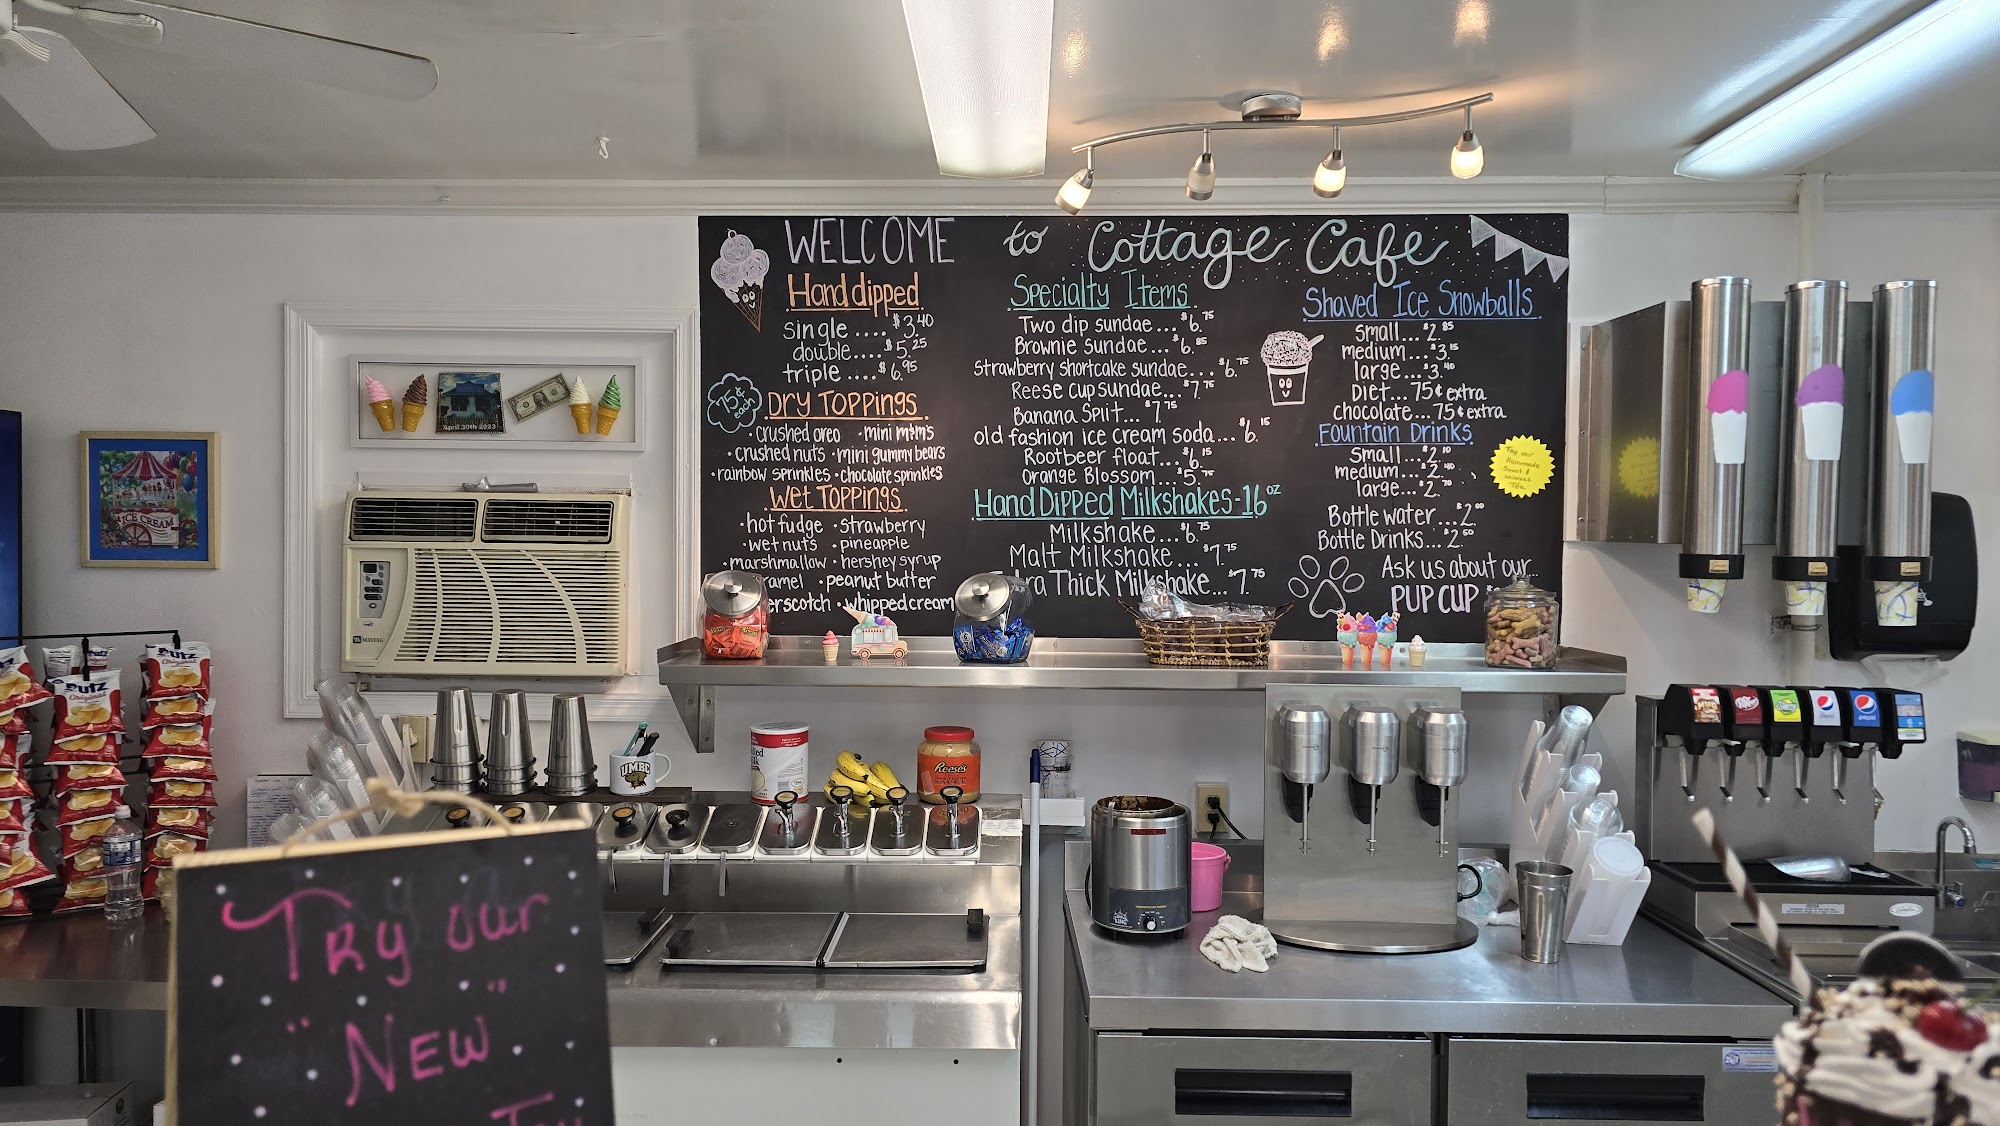 WELCOME to Cottage Cafe
Hand dipped
single .... $3.40
double.... $5.25
triple .... $6.95
75¢ each
DRY TOPPINGS
• crushed oreo • mini m&m's
• crushed nuts • mini gummy bears
• rainbow sprinkles • chocolate sprinkles
WET TOPPINGS
• hot fudge • strawberry
• wet nuts • pineapple
• marshmallow • hershey syrup
• peanut butter
• whipped cream
Specialty Items
Two dip sundae ... $6.75
Brownie sundae ... $6.85
Strawberry shortcake sundae... $6.75
Reese cup sundae... $7.75
Banana Split... $7.75
old fashion ice cream soda... $6.15
Rootbeer float... $6.15
Orange Blossom .... $5.75
Hand Dipped Milkshakes-16oz
Milkshake ... $6.75
Malt Milkshake ... $7.75
Thick Milkshake... $7.75
Shaved Ice Snowballs
small... $2.85
medium ... $3.15
large... $3.40
Diet... 75¢ extra
chocolate... 75¢ extra
Fountain Drinks
small... $2.10
medium... $2.40
large... $2.70
Try our
Homemade
Sweet &
unsweet
Tea
Bottle water ... $2.00
Bottle Drinks... $2.50
Ask us about our...
PUP CUP
April 30th 2023
ICE CREAM
MAYTAG
UTZ
Original
UMBC
Reese's
pepsi
Try our
"New"